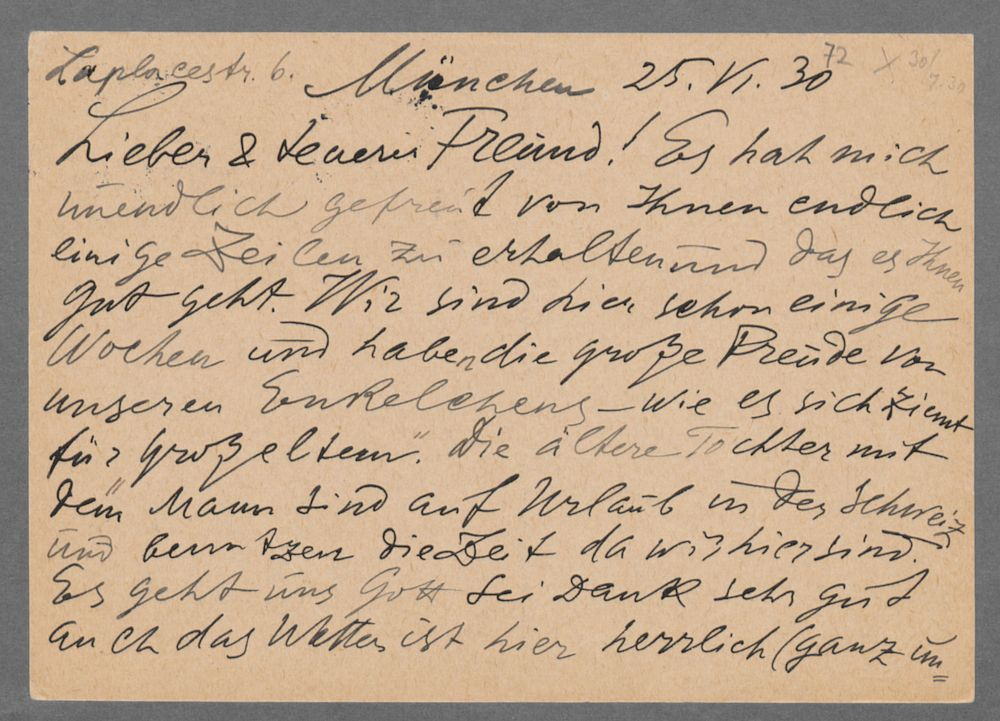 Laplacestr. 6. München 25. VI. 30
72 X 30/7.30
Lieber & teurer Freund! Es hat mich
unendlich gefreut von Ihnen endlich
einige Zeilen zu erhalten und das es Ihnen
gut geht. Wir sind hier schon einige
Wochen und haben die große Freude von
unseren Enkelchens – wie es sich ziemt
für Großeltern". Die ältere Tochter mit
dem Mann sind auf Urlaub in der Schweiz
und benutzen die Zeit da wir hier sind.
Es geht uns Gott sei Dank sehr gut
auch das Wetter ist hier herrlich (ganz un=